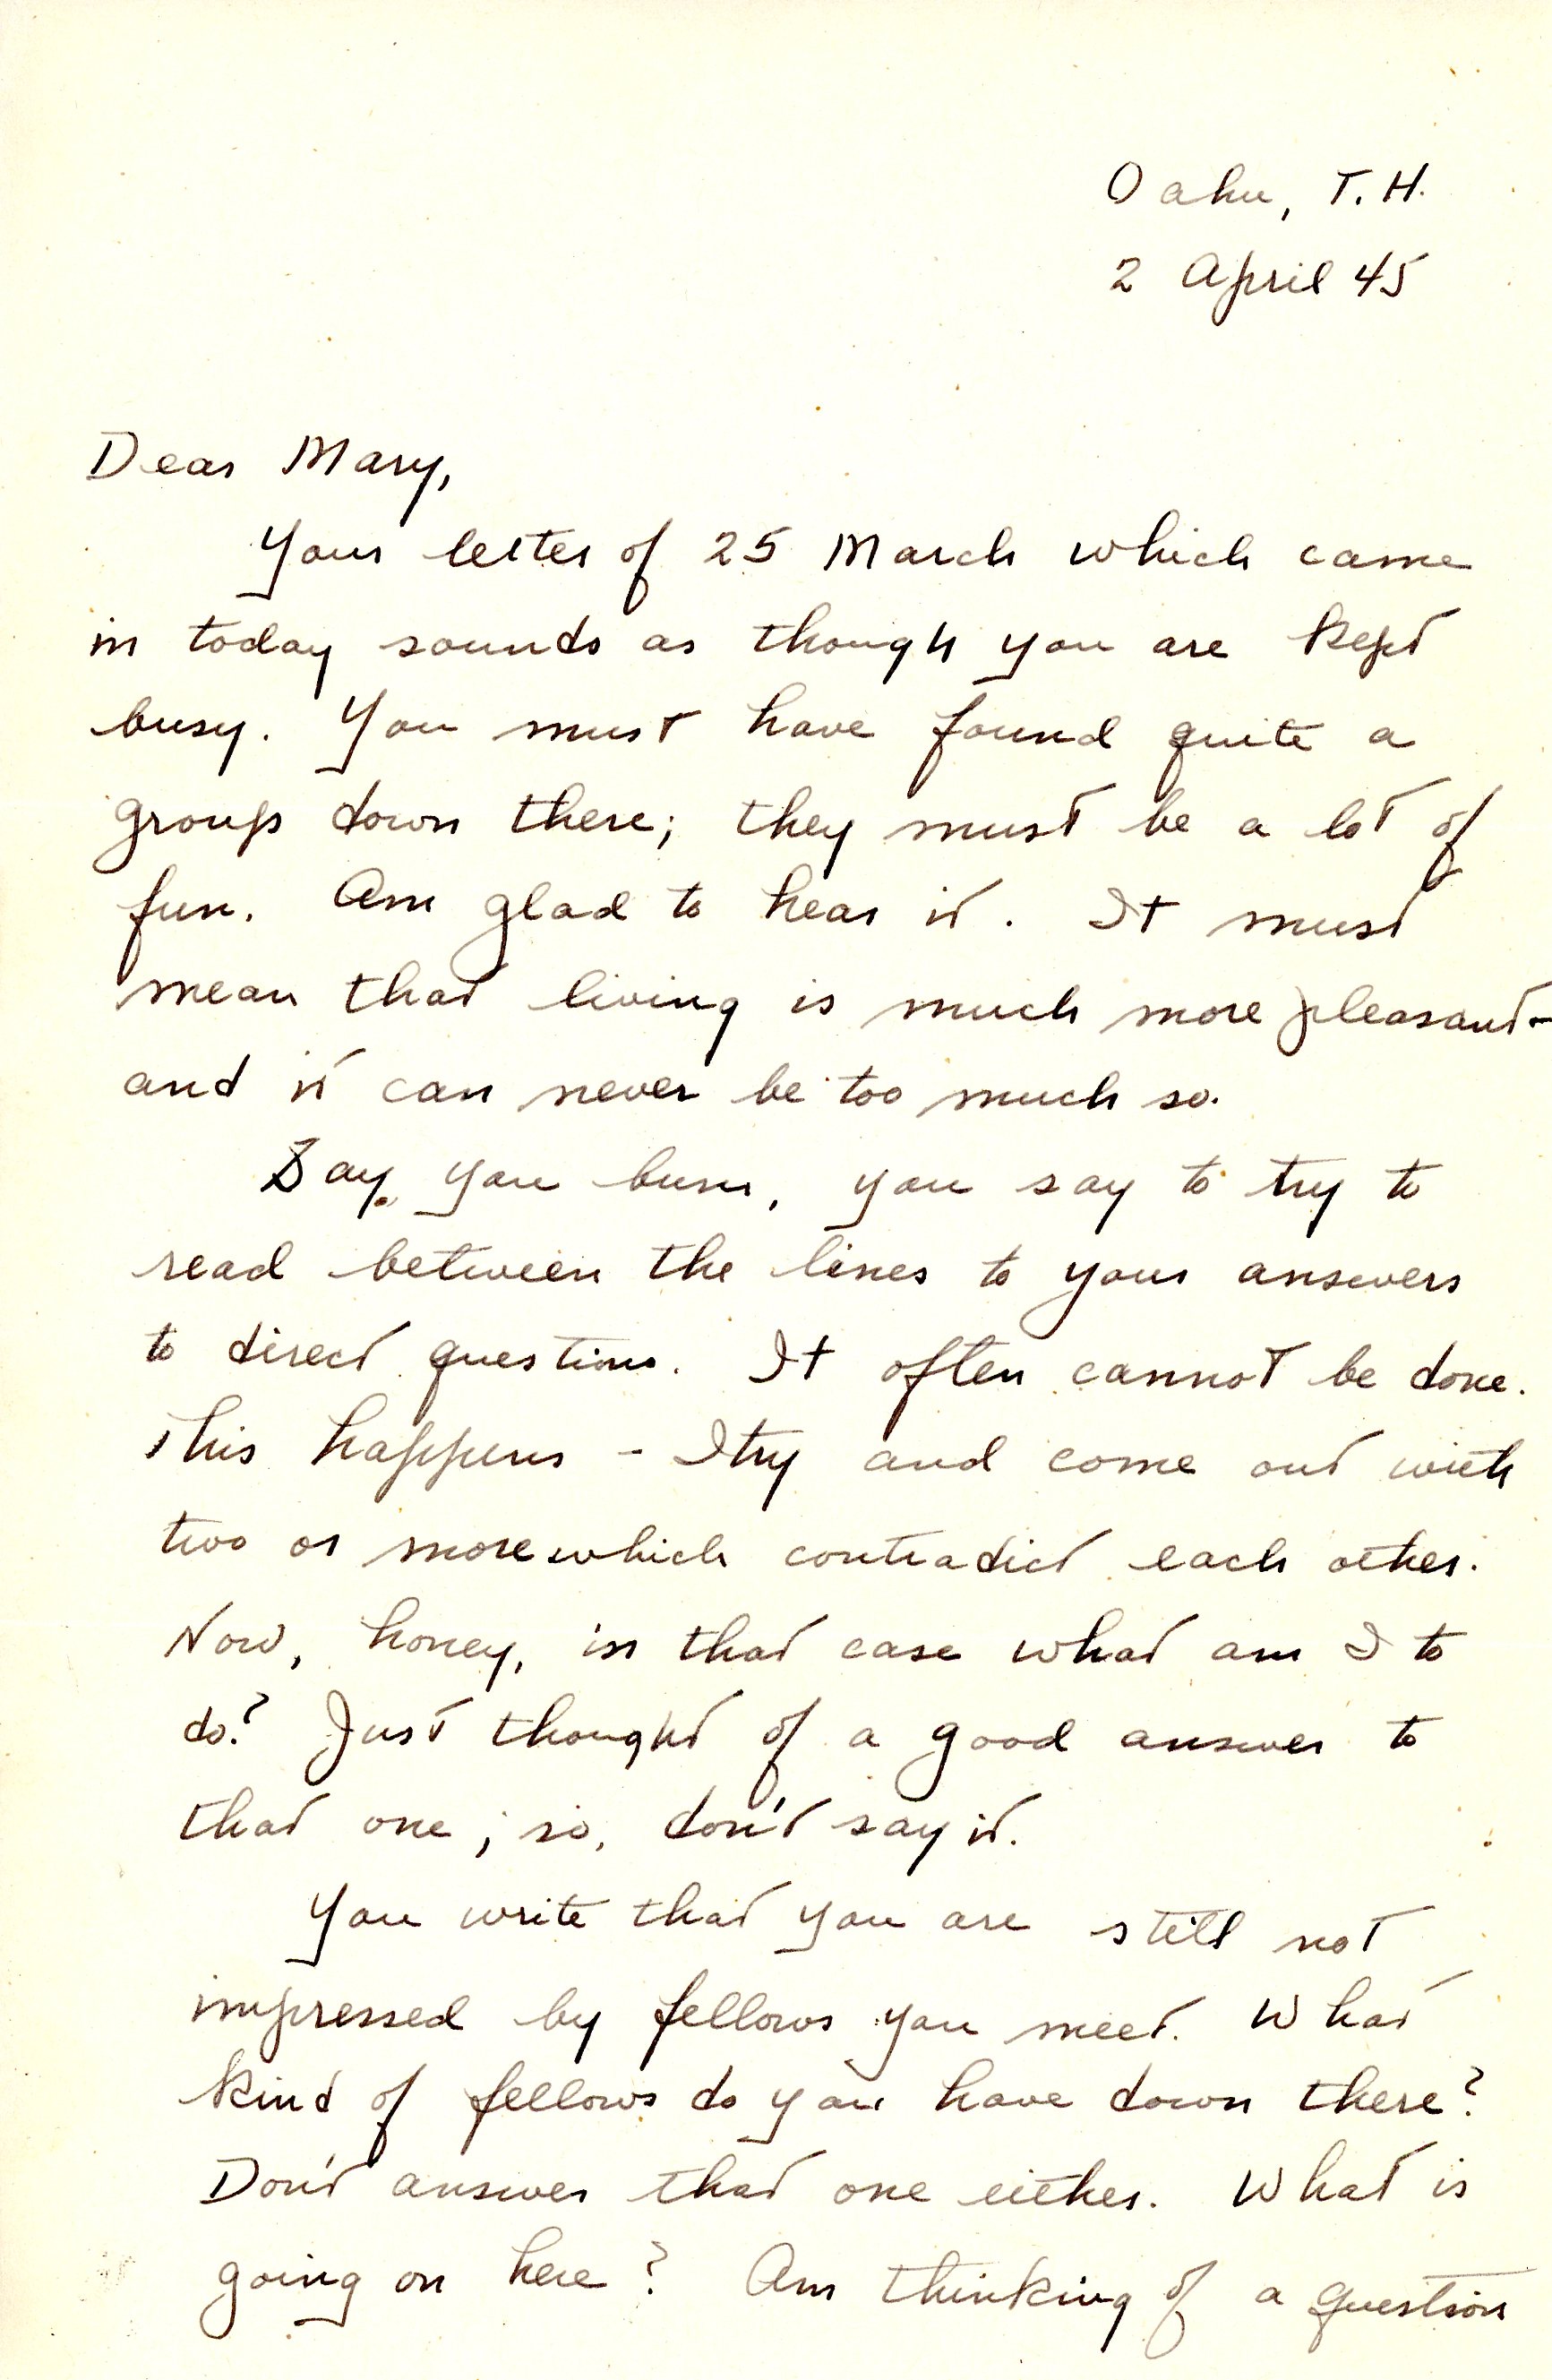 Oahu, T.H.
2 April 45
Dear Mary,
Your letter of 25 March which came
in today sounds as though you are kept
busy. You must have found quite a
group down there; they must be a lot of
fun. Am glad to hear it. It must
mean that living is much more pleasant-
and it can never be too much so.
Say, you bum, you say to try to
read between the lines to your answers
to direct questions. It often cannot be done.
This happens - I try and come out with
two or more which contradict each other.
Now, honey, in that case what am I to
do? Just thought of a good answer to
that one; so, don't say it.
You write that you are still not
impressed by fellows you meet. What
kind of fellows do you have down there?
Don't answer that one either. What is
going on here? Am thinking of a question